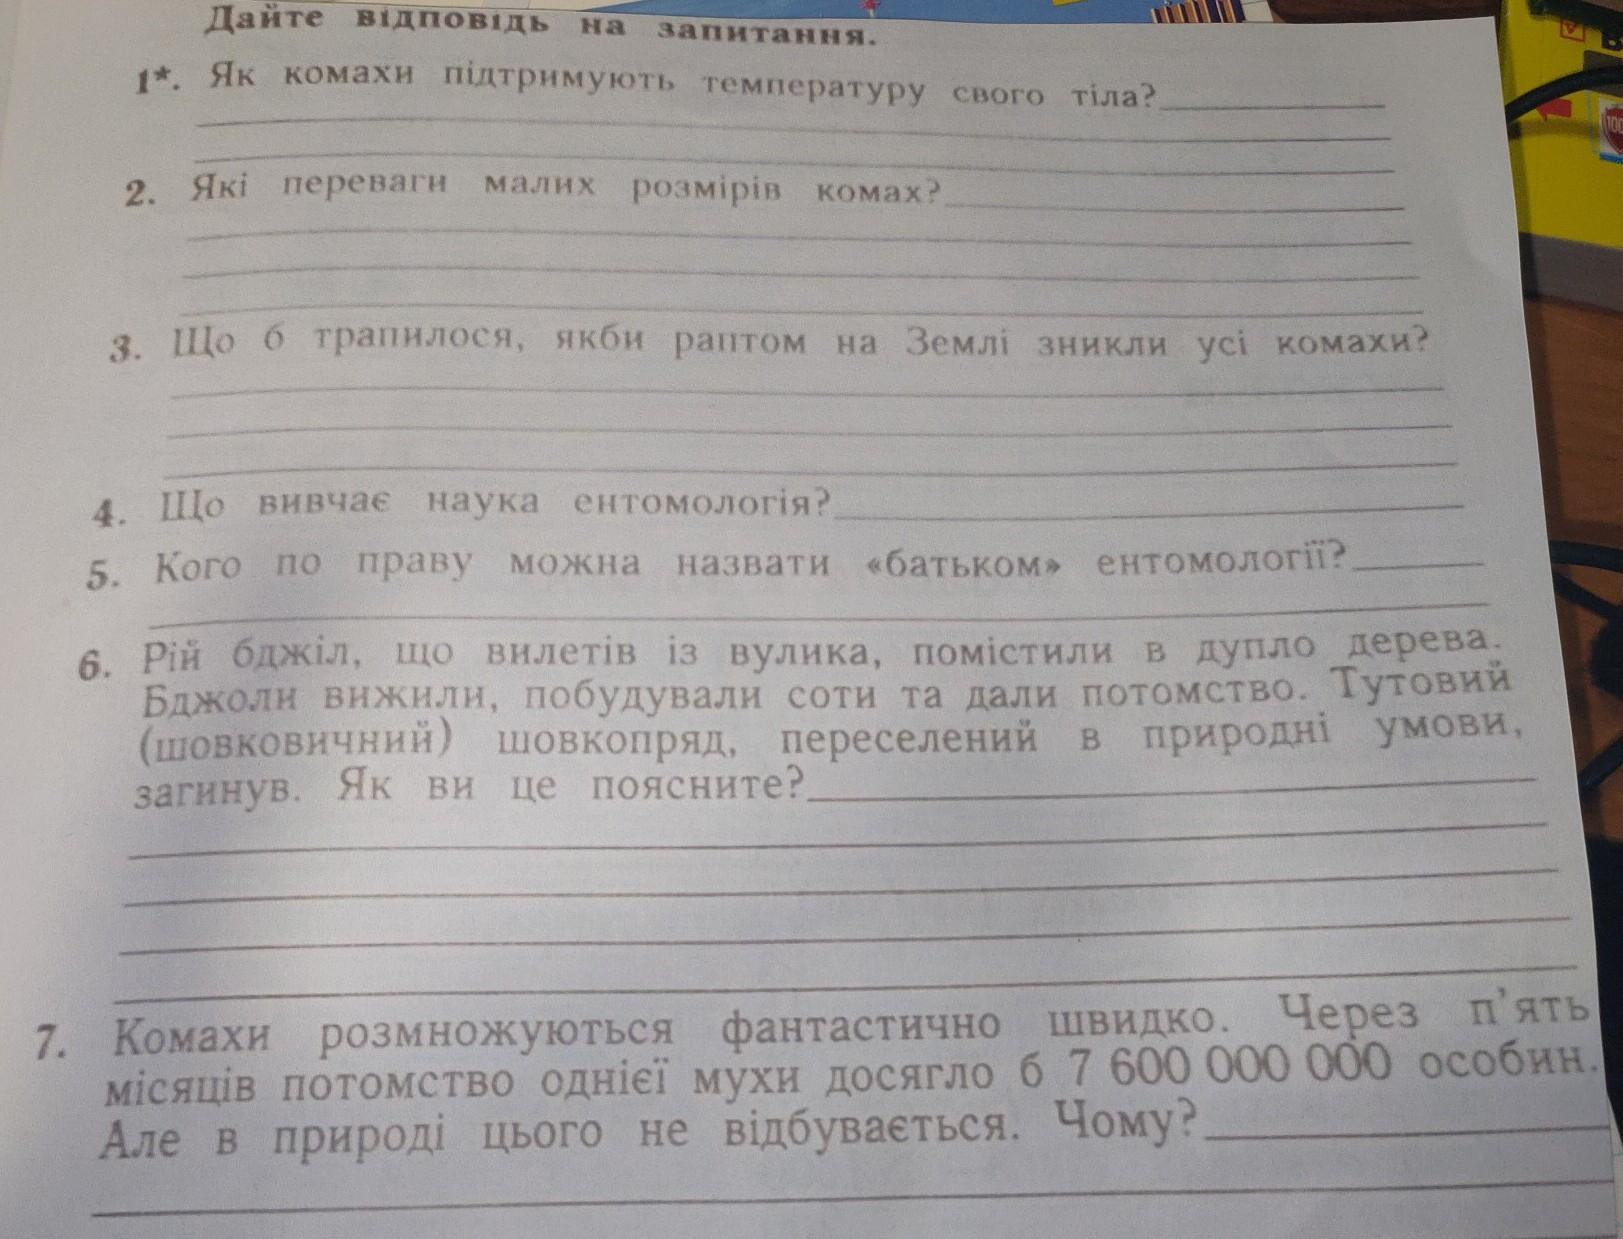 Дайте відповідь на запитання.
1*. Як комахи підтримують температуру свого тіла?
2. Які переваги малих розмірів комах?
3. Що б трапилося, якби раптом на Землі зникли усі комахи?
4. Що вивчає наука ентомологія?
5. Кого по праву можна назвати «батьком» ентомології?
6. Рій бджіл, що вилетів із вулика, помістили в дупло дерева.
Бджоли вижили, побудували соти та дали потомство. Тутовий
(шовковичний) шовкопряд, переселений в природні умови,
загинув. Як ви це поясните?
7. Комахи розмножуються фантастично швидко. Через п'ять
місяців потомство однієї мухи досягло б 7 600 000 000 особин.
Але в природі цього не відбувається. Чому?